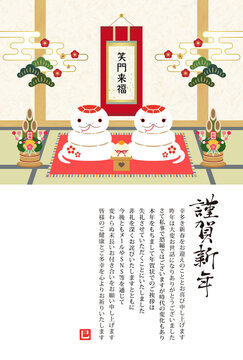 笑門来福
謹賀新年
幸多き新春をお迎えのこととお慶び申し上げます
昨年は大変お世話になりありがとうございました
さて私事で恐縮ではございますが時代の変化もあり
本年をもちまして年賀状でのご挨拶は
失礼させていただくことにいたしました
非礼を深くお詫びいたしますとともに
今後ともメールやSNS等を通じて
変わらぬ末長いお付き合いをお願い申し上げます
皆様のご健康とご多幸を心よりお祈りいたします
巳